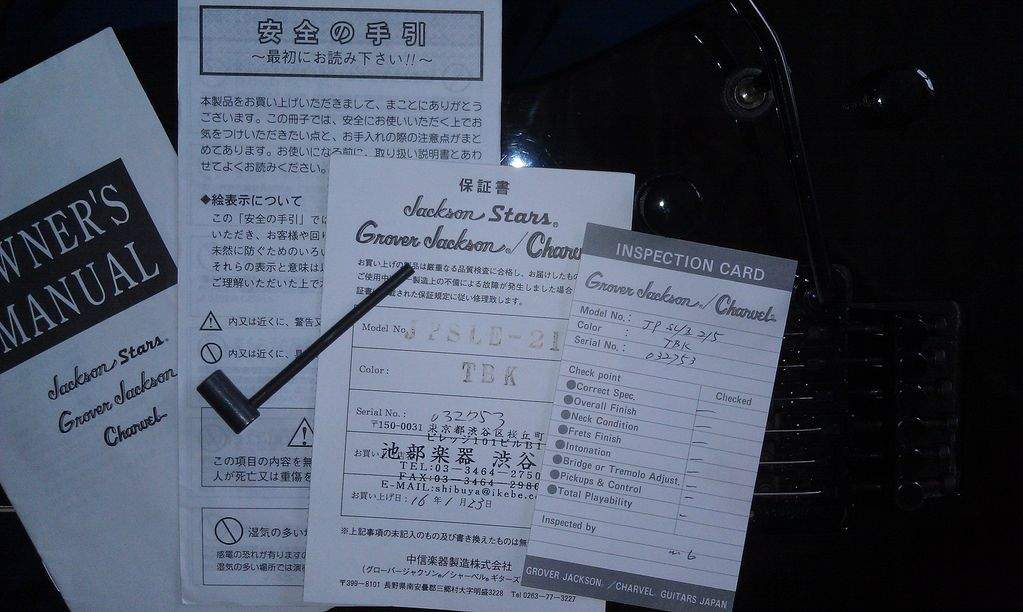 WNER'S
MANUAL
Jackson Stars®
Grover Jackson
Charvel
安全の手引
～最初にお読み下さい!!～
本製品をお買い上げいただきまして、まことにありがとう
ございます。この冊子では、安全にお使いいただく上でお
気をつけいただきたい点と、お手入れの際の注意点がまと
めてあります。お使いになる前に、取り扱い説明書とあわ
せてよくお読みください。
◆絵表示について
この「安全の手引」で
いただき、お客様や回り
未然に防ぐためのいろい
それらの表示と意味は
ご理解いただいた上で
内又は近くに、警告文
内又は近くに、
この項目の内容を無
人が死亡又は重傷を
湿気の多い
感電の恐れが有りますの
湿気の多い場所では演
保証書
Jackson Stars®
Grover Jackson®/Charve
お買い上げの製品は厳重なる品質検査に合格し、お届けしたもの
ご使用中 製造上の不備による故障が発生しました場合
証書 された保証規定に従い修理致します。
Model No. JPSLE-21
Color: TBK
Serial No.: 032753
〒150-0031 東京都渋谷区桜丘町
ビレッジ101ビルB1
お買い
池部楽器 渋谷
TEL:03-3464-2750
FAX:03-3464-298
E-MAIL:shibuya@ikebe.c
お買い上げ日: 16年1月23日
※上記事項の未記入のもの及び書き換えたものは無
中信楽器製造株式会社
(グローバージャクソン®/シャーベル®ギターズ
〒399-8101 長野県南安曇郡三郷村大字明盛3228 Tel 0263-77-3227
INSPECTION CARD
Grover Jackson®/Charvel
Model No.: JP SLE 215
Color : TBK
Serial No.: 032753
Check point Checked
●Correct Spec.
●Overall Finish
●Neck Condition
●Frets Finish
●Intonation
●Bridge or Tremolo Adjust.
●Pickups & Control
●Total Playability
Inspected by
GROVER JACKSON®/CHARVEL® GUITARS JAPAN